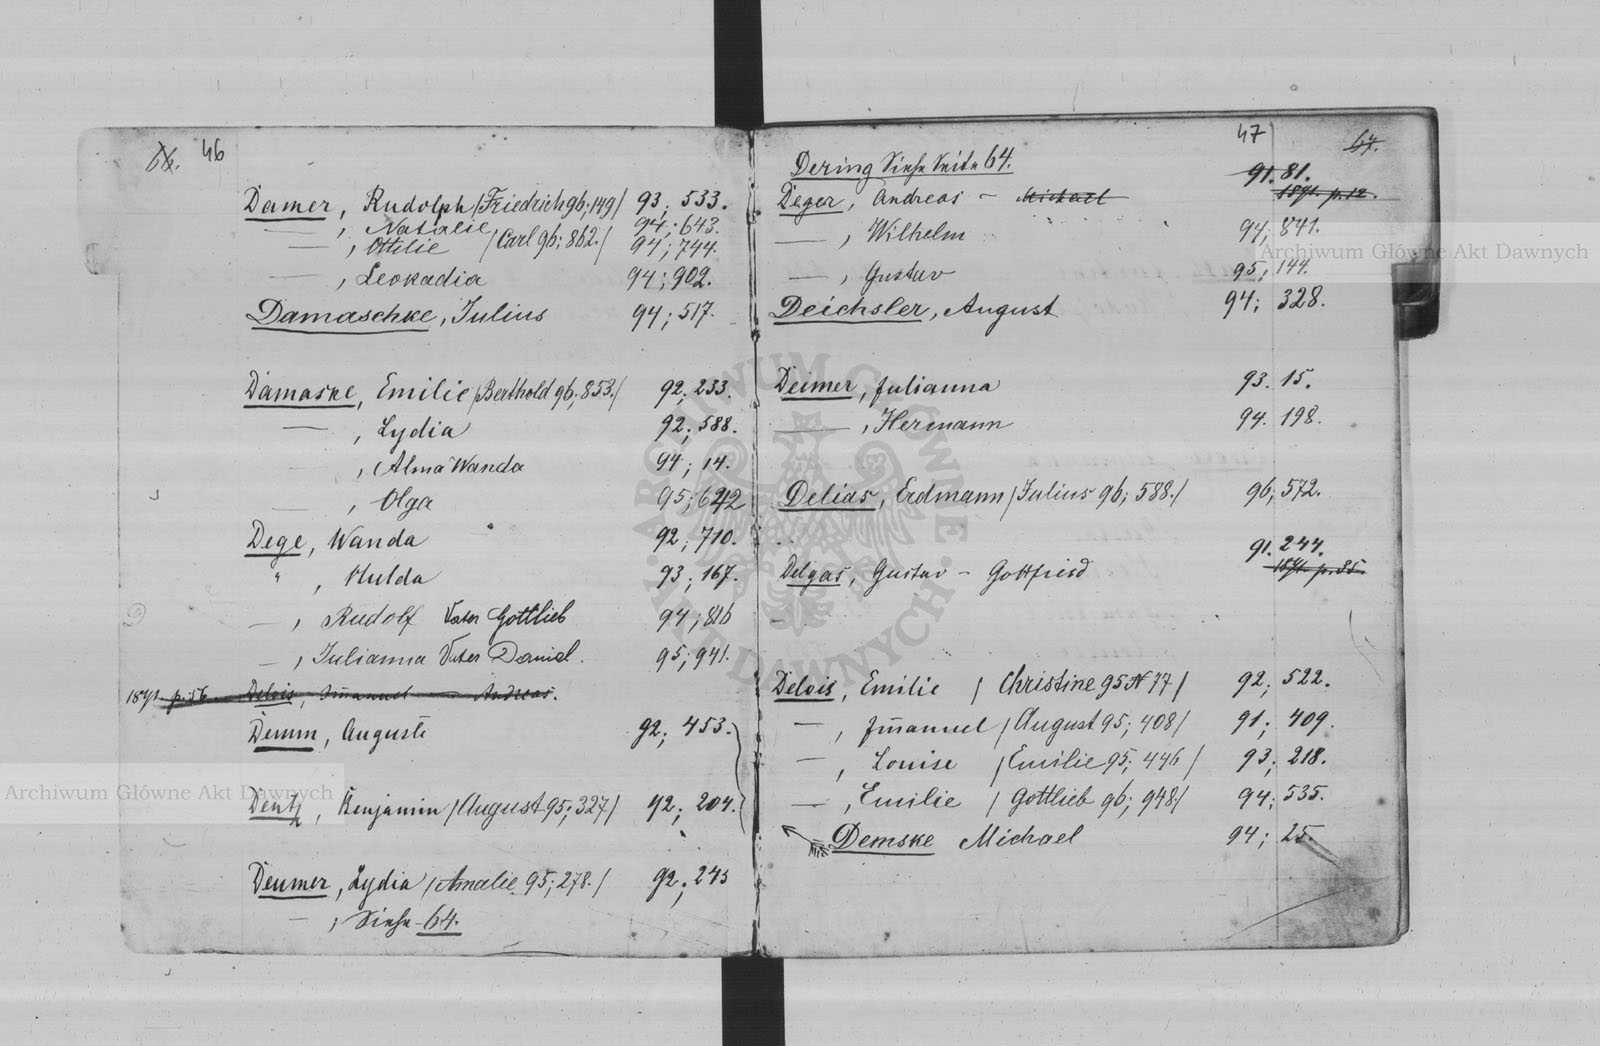 66. 46
Damer, Rudolph /Friedrich 96; 149/ 93; 533.
— , Natalie 94; 643.
— , Ottilie /Carl 96; 862./ 94; 744.
— , Leokadia 94; 902.
Damaschke, Julius 94; 517.
Damaske, Emilie /Berthold 96; 853./ 92; 233.
— , Lydia 92; 588.
, Alma Wanda 94; 14.
— , Olga 95; 642
Dege, Wanda 92; 710.
" , Hulda 93; 167.
— , Rudolf Vater Gottlieb 94; 816
— , Julianna Vater Daniel. 95; 941.
1891. p. 56 Delois, Im̄anuel — Andreas.
Demm, Auguste 92; 453.
Dentz, Benjamin /August 95; 327/ 92; 204.
Deumer, Lydia /Amalie 95; 278./ 92; 245
— , Siehe 64.
47 67.
Dering Siehe Seite 64.
91. 81.
Deger, Andreas – Michael 1891. p. 12.
— , Wilhelm 94; 841.
— , Gustav 95; 144.
Deichsler, August 94; 328.
Deimer, Julianna 93. 15.
— , Hermann 94. 198.
Delias, Erdmann /Julius 96; 588./ 96; 572.
91. 244.
Delgas, Gustav – Gottfried 1891. p. 35.
Delois, Emilie /Christine 95 N 77/ 92; 522.
— , Im̄anuel /August 95; 408/ 91; 409.
— , Louise /Emilie 95; 446/ 93; 218.
— , Emilie /Gottlieb 96; 948/ 94; 535.
Demske Michael 94; 25.
Archiwum Główne Akt Dawnych
Archiwum Główne Akt Dawnych
ARCHIWUM GŁÓWNE AKT DAWNYCH